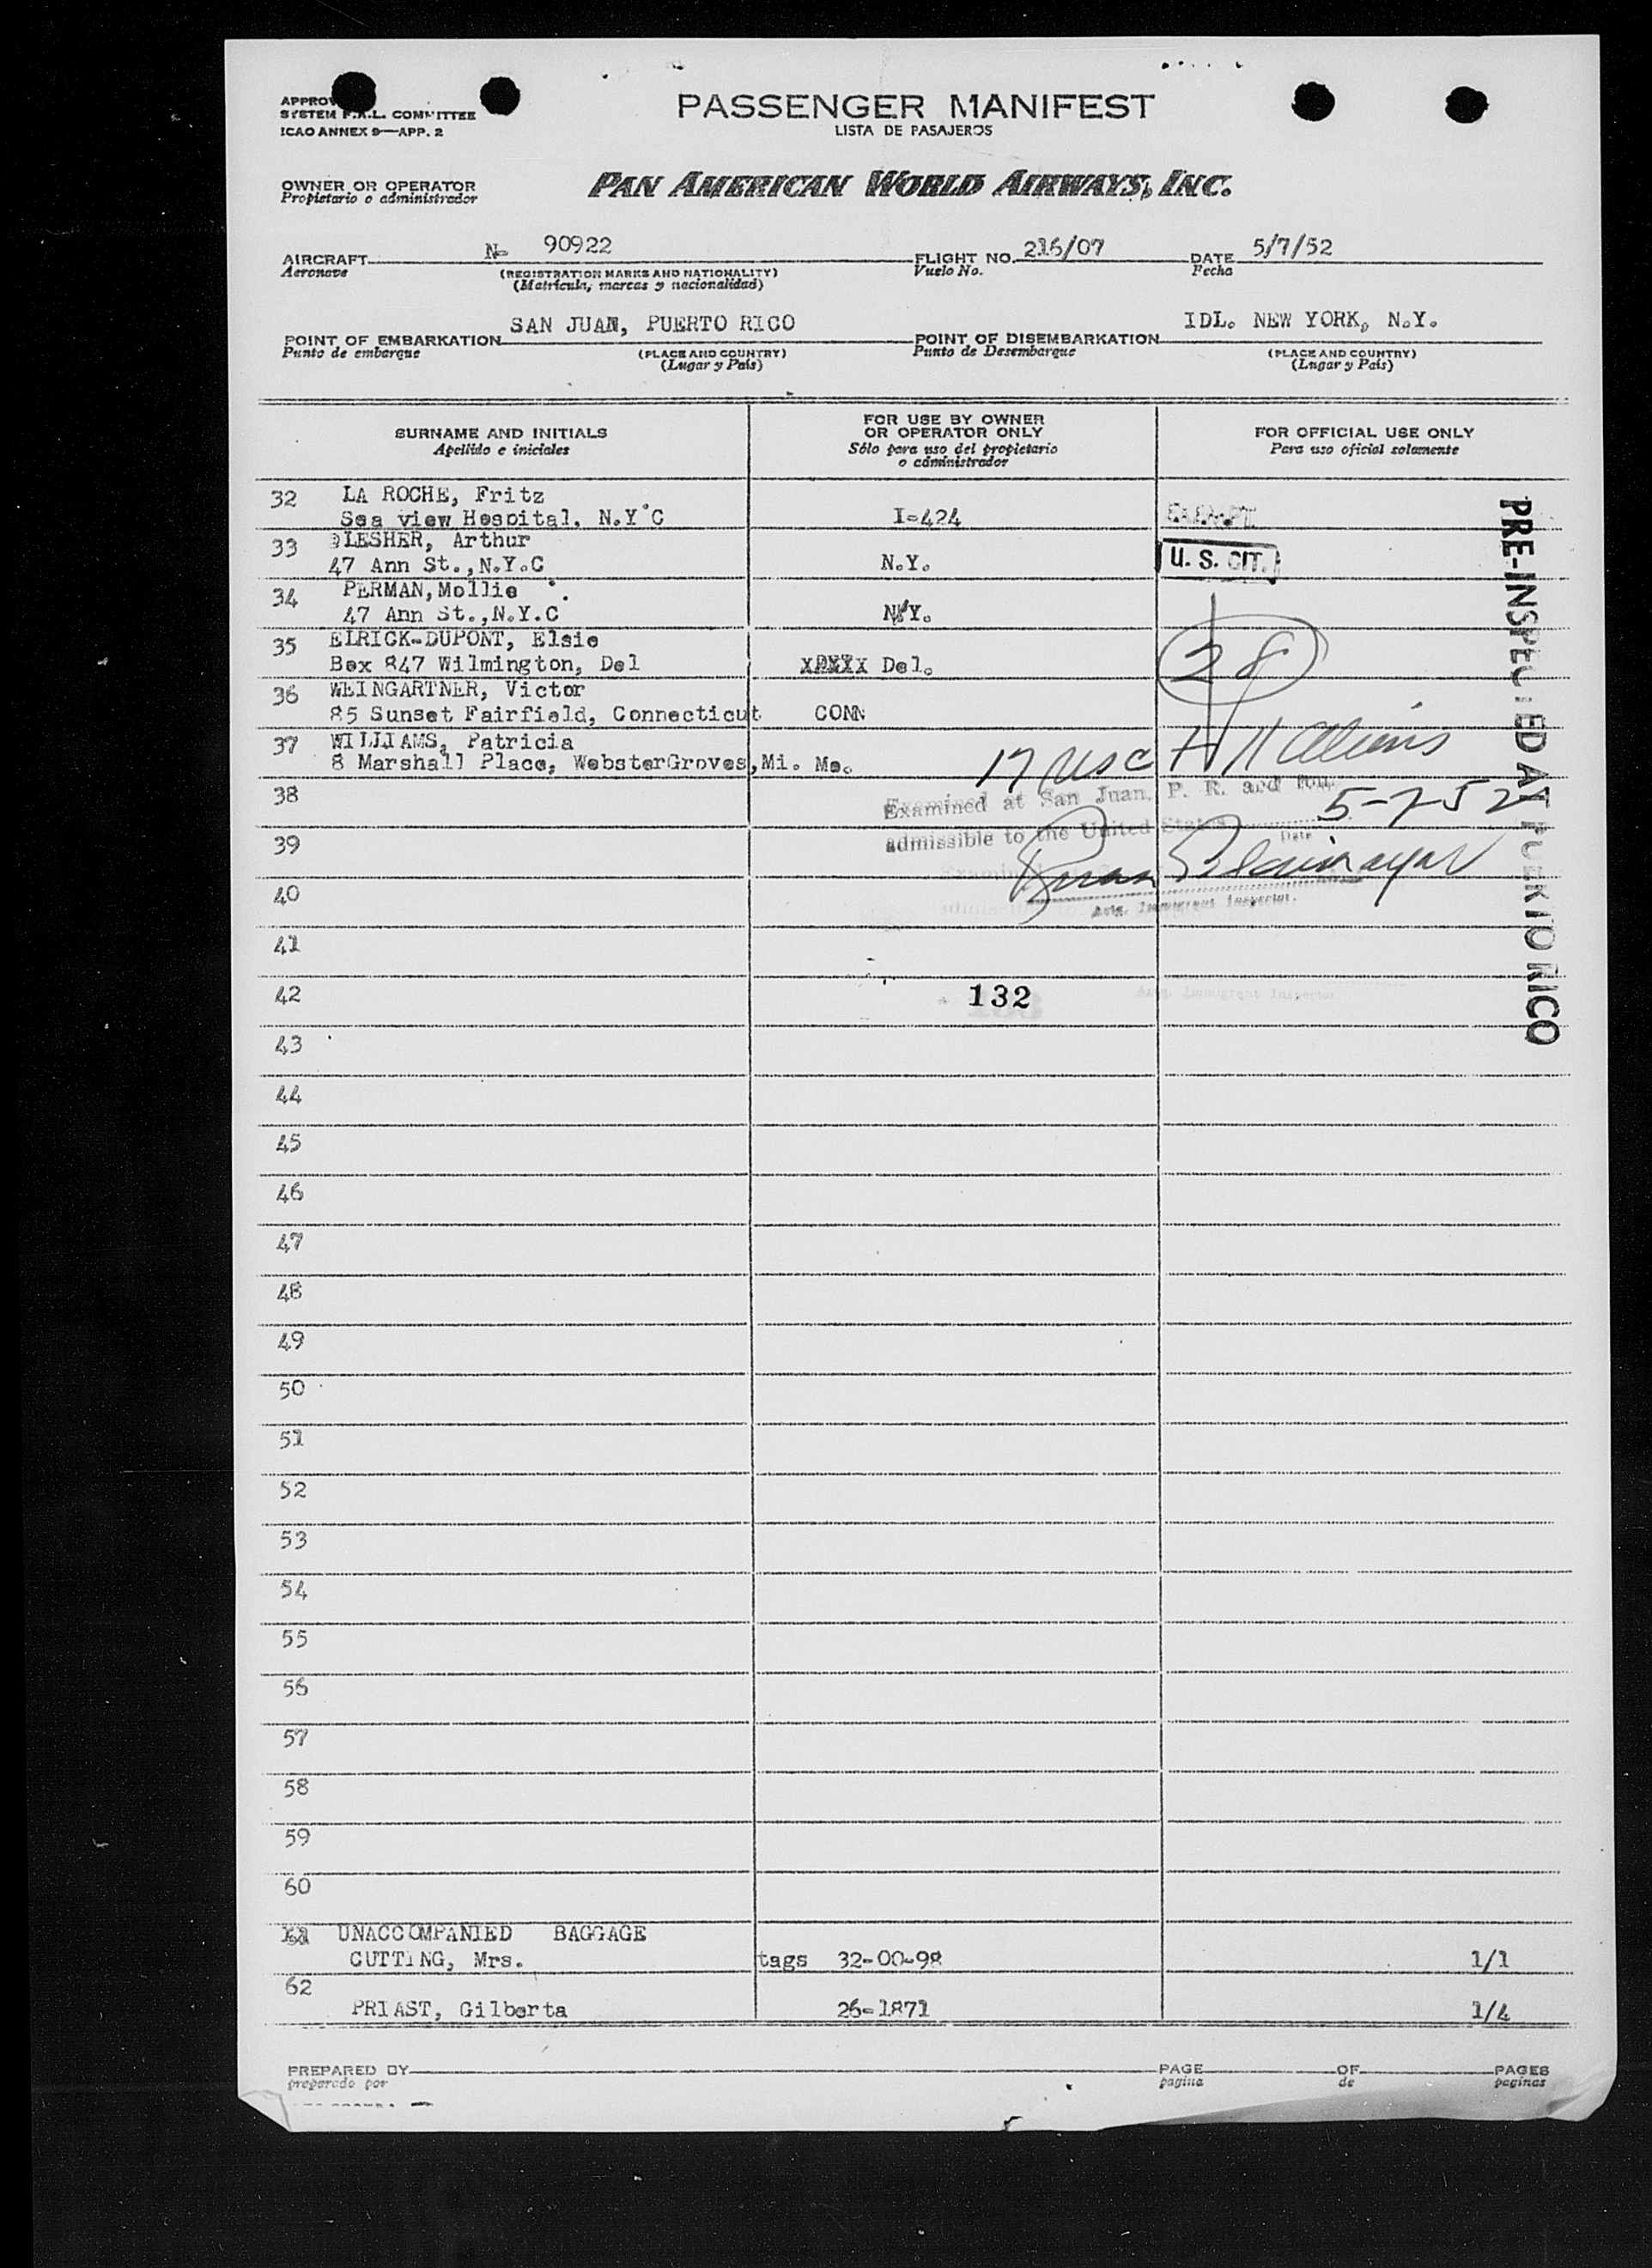 PASSENGER MANIFEST
LISTA DE PASAJEROS
SYSTEM F.A.L. COMMITTEE
ICAO ANNEX 9—APP. 2
OWNER OR OPERATOR
Propietario o administrador
PAN AMERICAN WORLD AIRWAYS, INC.
AIRCRAFT No 90922 FLIGHT NO. 216/07 DATE 5/7/52
Aeronave (REGISTRATION MARKS AND NATIONALITY) Vuelo No. Fecha
(Matrícula, marcas y nacionalidad)
POINT OF EMBARKATION SAN JUAN, PUERTO RICO POINT OF DISEMBARKATION IDL. NEW YORK, N.Y.
Punto de embarque (PLACE AND COUNTRY) Punto de Desembarque (PLACE AND COUNTRY)
(Lugar y País) (Lugar y País)
SURNAME AND INITIALS
Apellido e iniciales
FOR USE BY OWNER
OR OPERATOR ONLY
Sólo para uso del propietario
o administrador
FOR OFFICIAL USE ONLY
Para uso oficial solamente
32 LA ROCHE, Fritz
Sea view Hospital, N.Y°C I-424 EXEMPT
33 LESHER, Arthur
47 Ann St.,N.Y.C N.Y. U. S. CIT.
34 PERMAN,Mollie
47 Ann St.,N.Y.C N.Y.
35 ELRICK-DUPONT, Elsie
Box 847 Wilmington, Del Del. 28
36 WEINGARTNER, Victor
85 Sunset Fairfield, Connecticut CONN
37 WILLIAMS, Patricia
8 Marshall Place, WebsterGroves,Mi. Mo. 17 USC 11 Aliens
38
Examined at San Juan, P. R. and fou. 5-7-52
39
admissible to the United States Date
40
Actg. Immigrant Inspector.
41
42 132
43
44
45
46
47
48
49
50
51
52
53
54
55
56
57
58
59
60
UNACCOMPANIED BAGGAGE
CUTTING, Mrs. tags 32-00-98 1/1
62
PRIAST, Gilberta 26-1871 1/4
PREPARED BY PAGE OF PAGES
preparado por pagina de paginas
PRE-INSPECTED AT PUERTO RICO